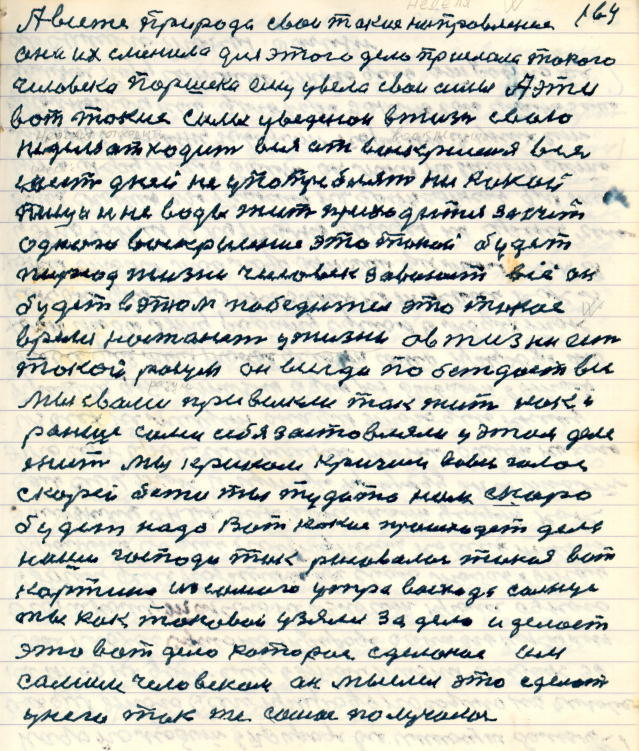 неделя 164
А вистя природа свои такие направление
они их сменила для этого дело прислала такого
человека Паршека ему увела свои силы А эти
вот такие силы уведеной в жизнь свою
неделя отходит вся от воскрисеня вся
шест дней не упоτребляτ ни какой
пищи и не воды жит приходится защит
одного воскрисение это такой будет
период жизни человек завоюит всё он
будет в этом победител это такое
время настанет у жизни ов жизни ест
такой разум он всегда побеждает вы
разум
мы свами привыкли так жит как и
ранще сами себя заставляли у этом деле
жит мы криком кричим вовес голос
скорей бежи ты туда то нам скоро
будет надо Вот какие происходет дела
наши господа так рисовалас такая вот
картина и с самого утра восхода солнце
мы как таковой узяли за дело и делает
это вот дело которое сделаное им
самим человеком он мыслил это сделат
у него так же самое получалос